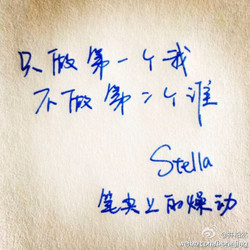 只做第一个我
不做第二个谁
Stella
笔尖上的燥动